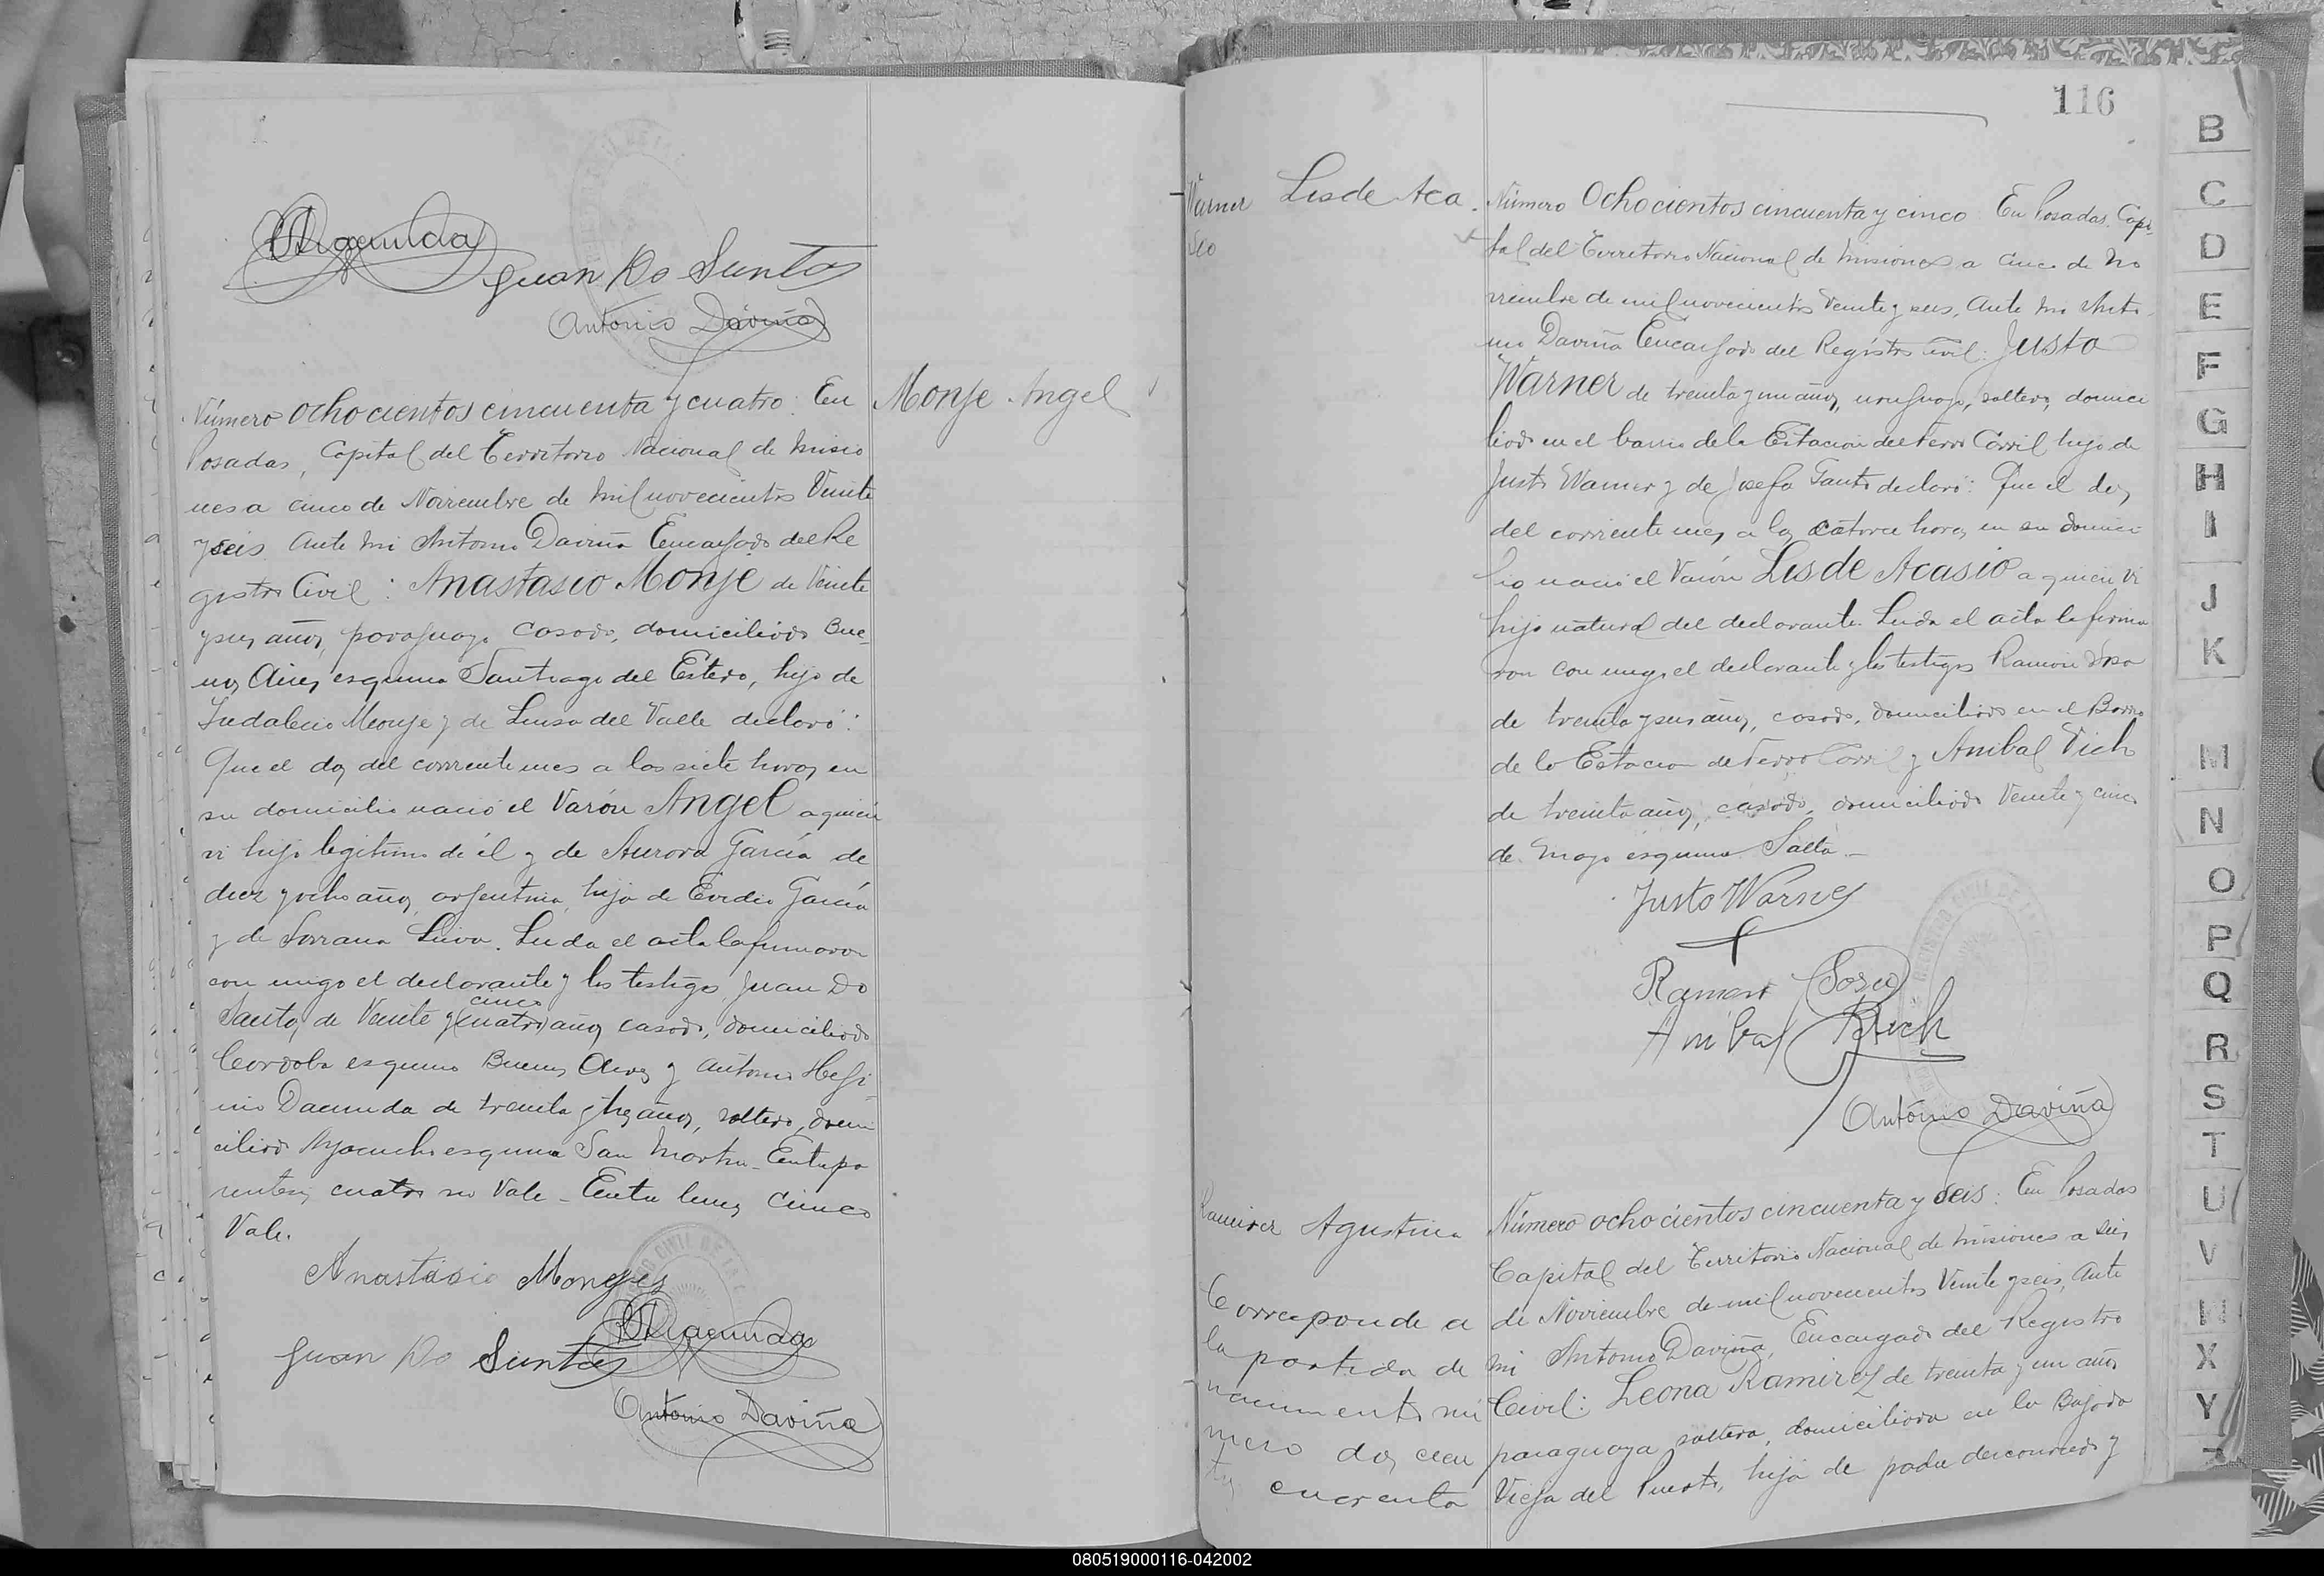 Juan Do Santos
Antonio Daviña
Número ocho cientos cincuenta y cuatro: En
Monje Angel
Posadas, Capital del Territorio Nacional de Misio
nes a cinco de Noviembre de mil novecientos Veinte
y seis. Ante mi Antonio Daviña Encargado del Re
gistro Civil: Anastasio Monje de Veinte
y seis años, paraguayo, casado, domiciliado Bue-
nos Aires esquina Santiago del Estero, hijo de
Indalecio Monje y de Luisa del Valle declaró:
Que el dos del corriente mes a las siete horas en
su domicilio nació el Varón Angel a quien
vi hijo legitimo de él y de Aurora García de
diez y ocho años, argentina, hija de Evedio García
y de Leida el acta la firmaron
con migo el declarante y los testigos Juan Do
cinco
Santos de Veinte y cuatro años casado, domiciliado
Cordoba esquina Buenos Aires y Antonio Hegi
nio Dacunda de treinta y tres años, soltero, domi
ciliado Ayacucho esquina San Martin - Entre pa
rentesis cuatro no Vale - Entre lineas cinco
Vale.
Anastasio Monges
Dacunda
Juan Do Santos
Antonio Daviña
116
Warner Lisde Aca
sio
Número Ochocientos cincuenta y cinco En Posadas Capi-
tal del Territorio Nacional de Misiones a cinco de No
viembre de mil novecientos Veinte y seis, Ante mi Anto
nio Daviña Encargado del Registro Civil: Justo
Warner de treinta y un años, uruguayo, soltero, domici
liado en el barrio de la Estacion del Ferro Carril hijo de
Justo Warner y de Josefa declaró: Que el dos
del corriente mes a las catorce horas en su domici
lio nació el Varón Lisde Acasio a quien vi
hijo natural del declarante. Leida el acta la firma
ron con migo el declarante y los testigos Ramon Sosa
de treinta y seis años, casado, domiciliado en el Barrio
de la Estacion de Ferro Carril y Anibal Vich
de treinta años, casado, domiciliado Veinte y cinco
de Mayo esquina Salta.-
Justo Warner
Ramon Sosa
Anibal Vich
Antonio Daviña
Ramirez Agustina
Número ocho cientos cincuenta y seis: En Posadas
Capital del Territorio Nacional de Misiones a seis
de Noviembre de mil novecientos Veinte y seis, Ante
mi Antonio Daviña, Encargado del Registro
Civil: Leona Ramirez de treinta y un años
paraguaya soltera, domiciliada en la Bajada
Vieja del Puerto, hija de padre desconocido y
Corresponde a
la partida de
nacimiento nú
mero dos cien
tos cuarenta
B
C
D
E
F
G
H
I
J
K
M
N
O
P
Q
R
S
T
U
V
X
Y
080519000116-042002